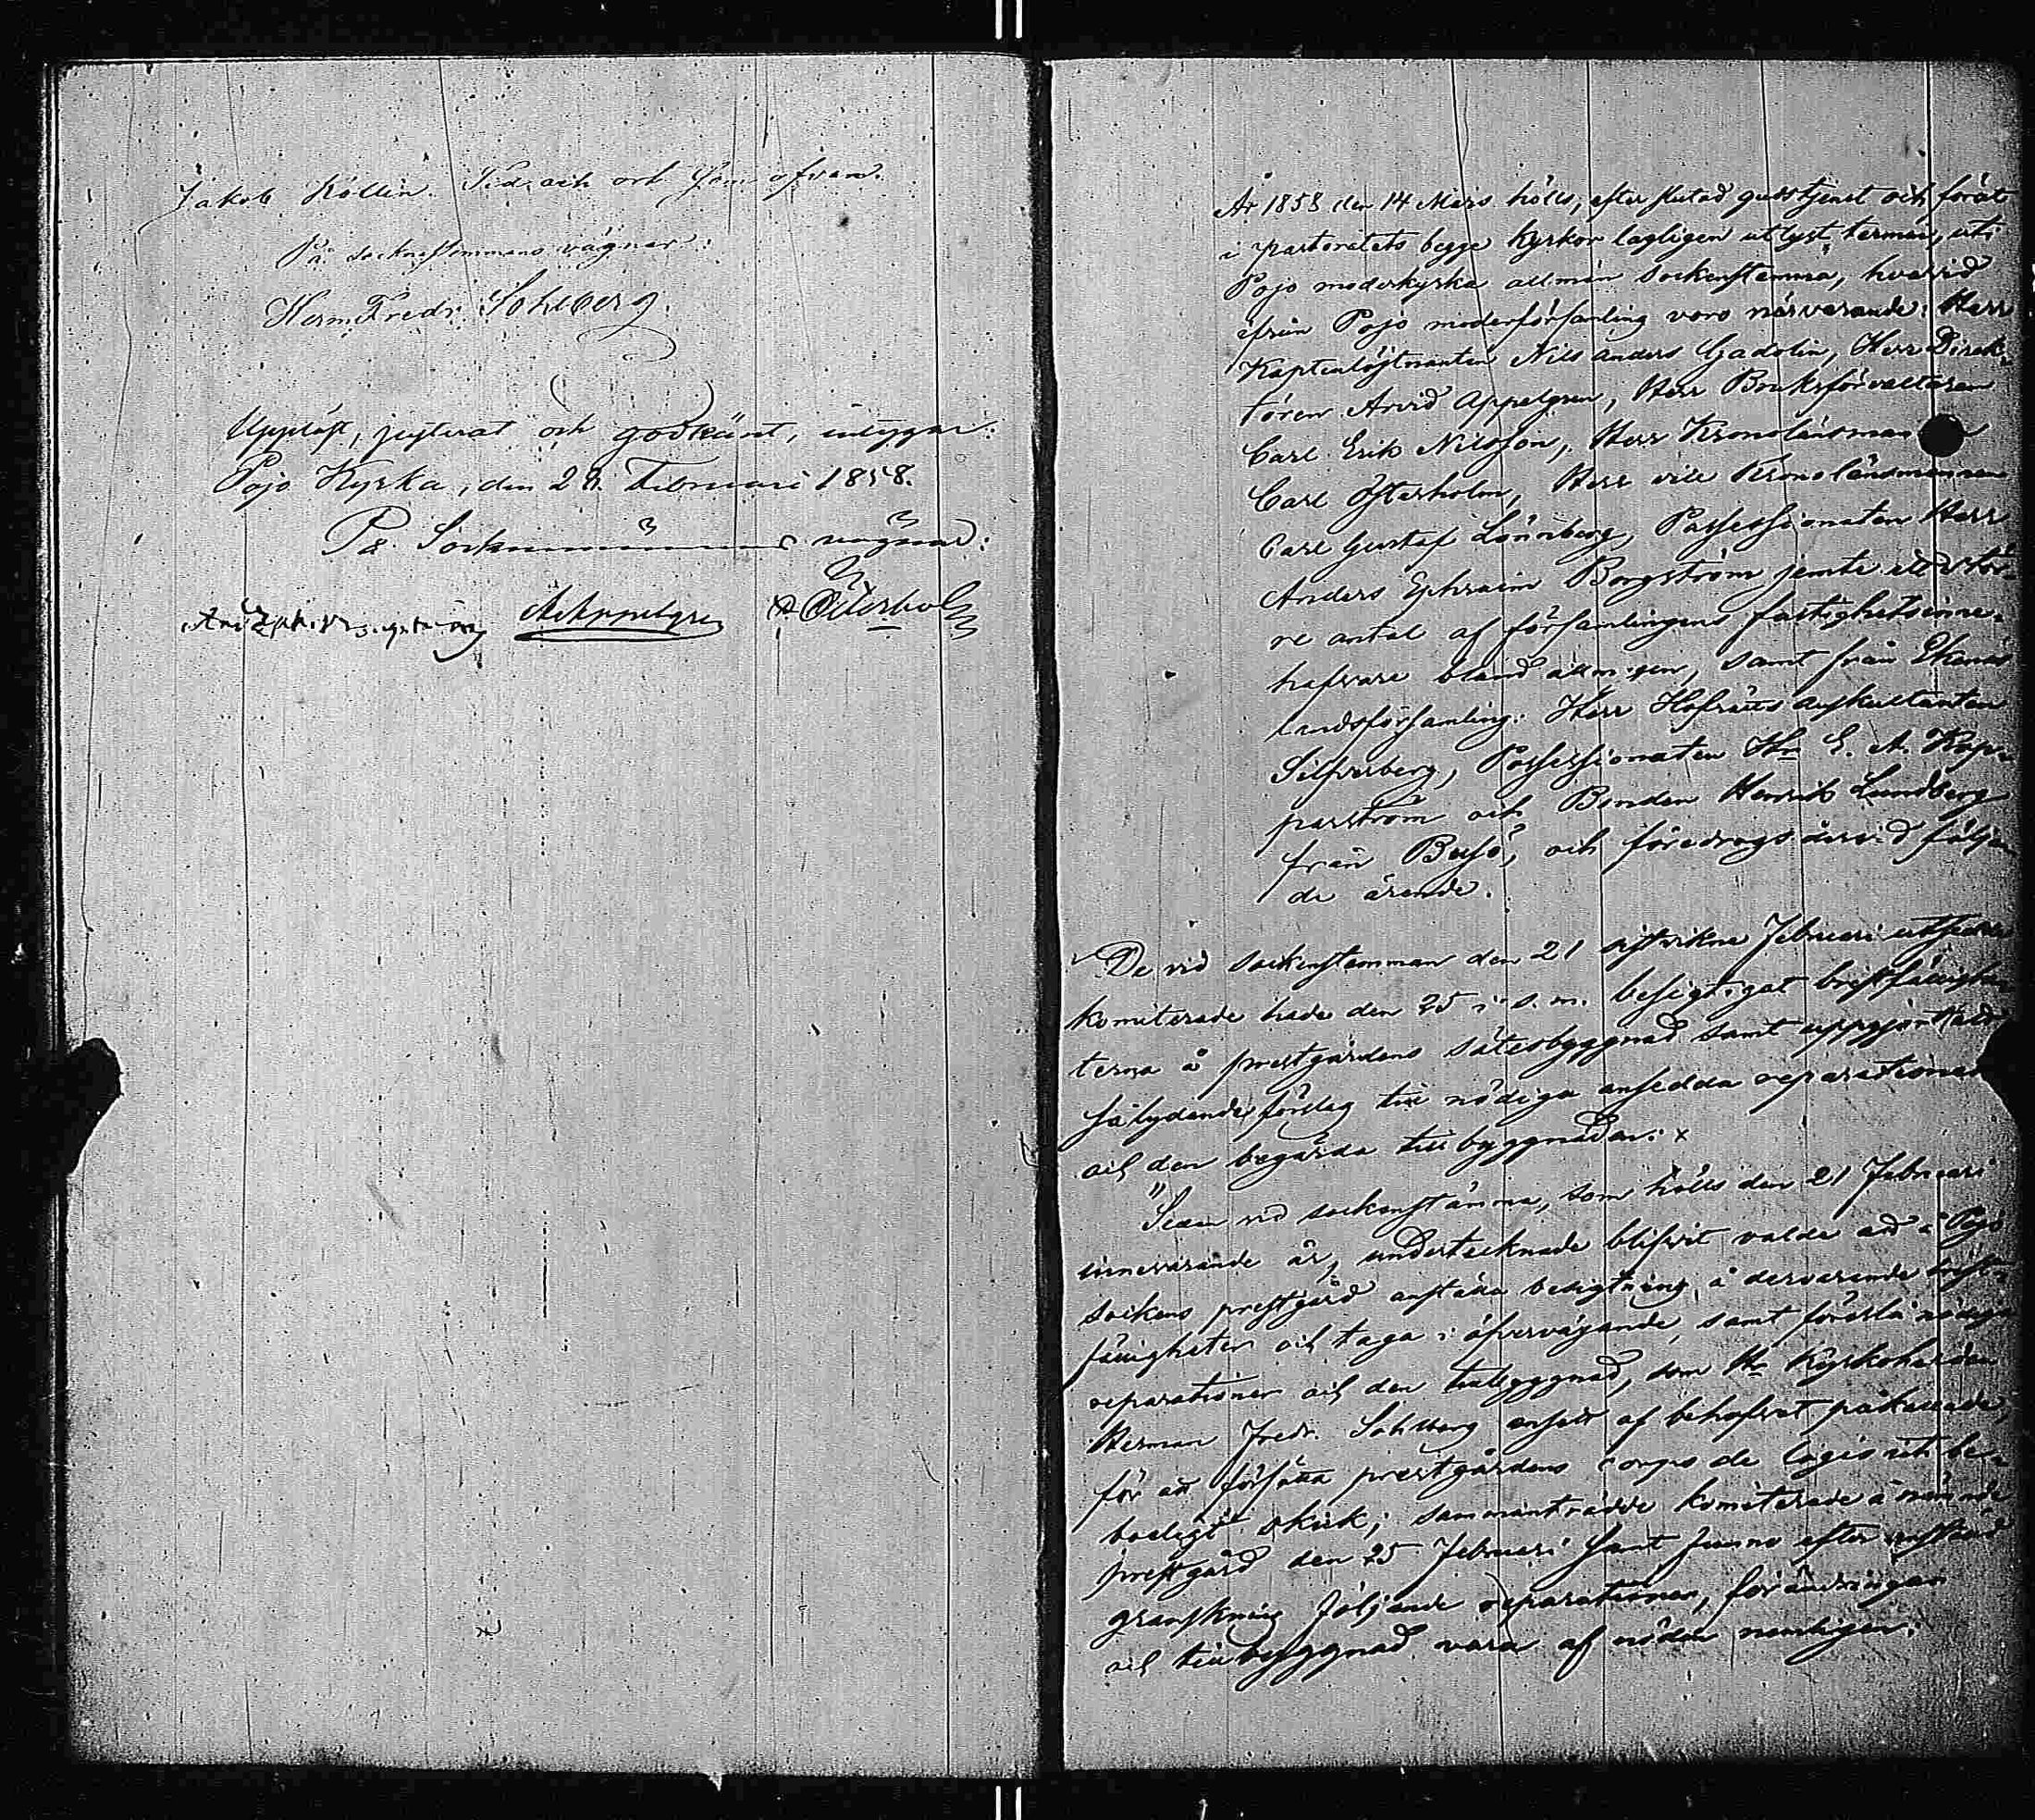 Jakob Röllin. Tid och ort som ofvan.
På sockenstämmans vägnar:
Herm. Fredr. Sohlberg.
Uppläst, justerat och godkänt, intygar:
Pojo Kyrka, den 28 Februari 1858.
På Sockenstämmans vägnar:
A. Appelgren C. Österholm
År 1858 den 14 Mars hölls, efter slutad gudstjenst och förut
i pastoratets begge Kyrkor lagligen utlyst termin, uti
Pojo moderkyrka allmän sockenstämma, hvarvid
ifrån Pojo moderförsamling voro närvarande: Herr
Kaptenlöjtnanten Nils Anders Gadolin, Herr Direk-
tören Arvid Appelgren, Herr Bruksförvaltaren
Carl Erik Nilsson, Herr Kronolänsman
Carl Österholm, Herr vice Kronolänsmannen
Carl Gustaf Lönnberg, Possessionaten Herr
Anders Ephraim Borgström jemte ett stör-
re antal af församlingens fastighetsinne-
hafvare bland allmogen, samt från Ekenäs
landsförsamling: Herr Hofrätts Auskultanten
Silfverberg, Possessionaten Hr E. A. Kop-
parström och Bonden Henrik Lundberg
från Busö, och föredrogs dervid följan
de ärende.
De vid sockenstämman den 21 sistvikne Februari utsedde
komiterade hade den 25 i s. m. besigtigat bristfällighe
terna å prestgårdens sätesbyggnad samt uppgjort
så lydande förslag till nödiga ansedda reparationer
och den begärda tillbyggnaden: x
"Sedan vid sockenstämma, som hölls den 21 Februari
innevarande år, undertecknade blifvit valde att å Pojo
sockens prestgård anställa besigtning å dervarande brist-
fälligheter och taga i öfvervägande, samt föreslå nödiga
reparationer och den tillbyggnad, som Hr Kyrkoherden
Herman Fredr. Sohlberg ansett af behofvet påkallade,
för att försätta prestgårdens corps de logis uti be-
boeligt skick; sammanträdde komiterade å nämnde
prestgård den 25 Februari samt funno efter anställd
granskning följande reparationer, förändringar
och tillbyggnad vara af nöden nemligen: